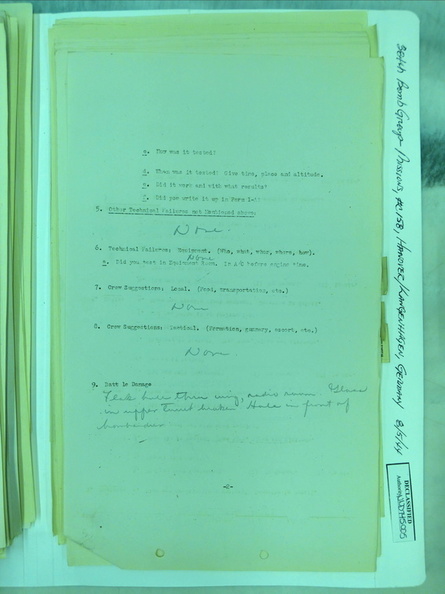 c. How was it tested?
d. When was it tested? Give time, place and altitude.
e. Did it work and with what results?
f. Did you write it up in Form 1-
5. Other Technical Failures not Mentioned above:
None
6. Technical Failures: Equipment. (Who, what, when, where, how).
None
a. Did you test in Equipment Room. If so before engine time.
7. Crew Suggestions: Local. (Food, transportation, etc.)
None
8. Crew Suggestions: Tactical. (Formation, gunnery, escort, etc.)
None
9. Battle Damage
Flak hole thru wing, radio room. Glass
in upper turret broken. Hole in front of
bombardier
-2-
384th Bomb Group Missions, # 158, Hanover/Langenhagen, Germany 8/5/44
DECLASSIFIED
Authority NND 745005